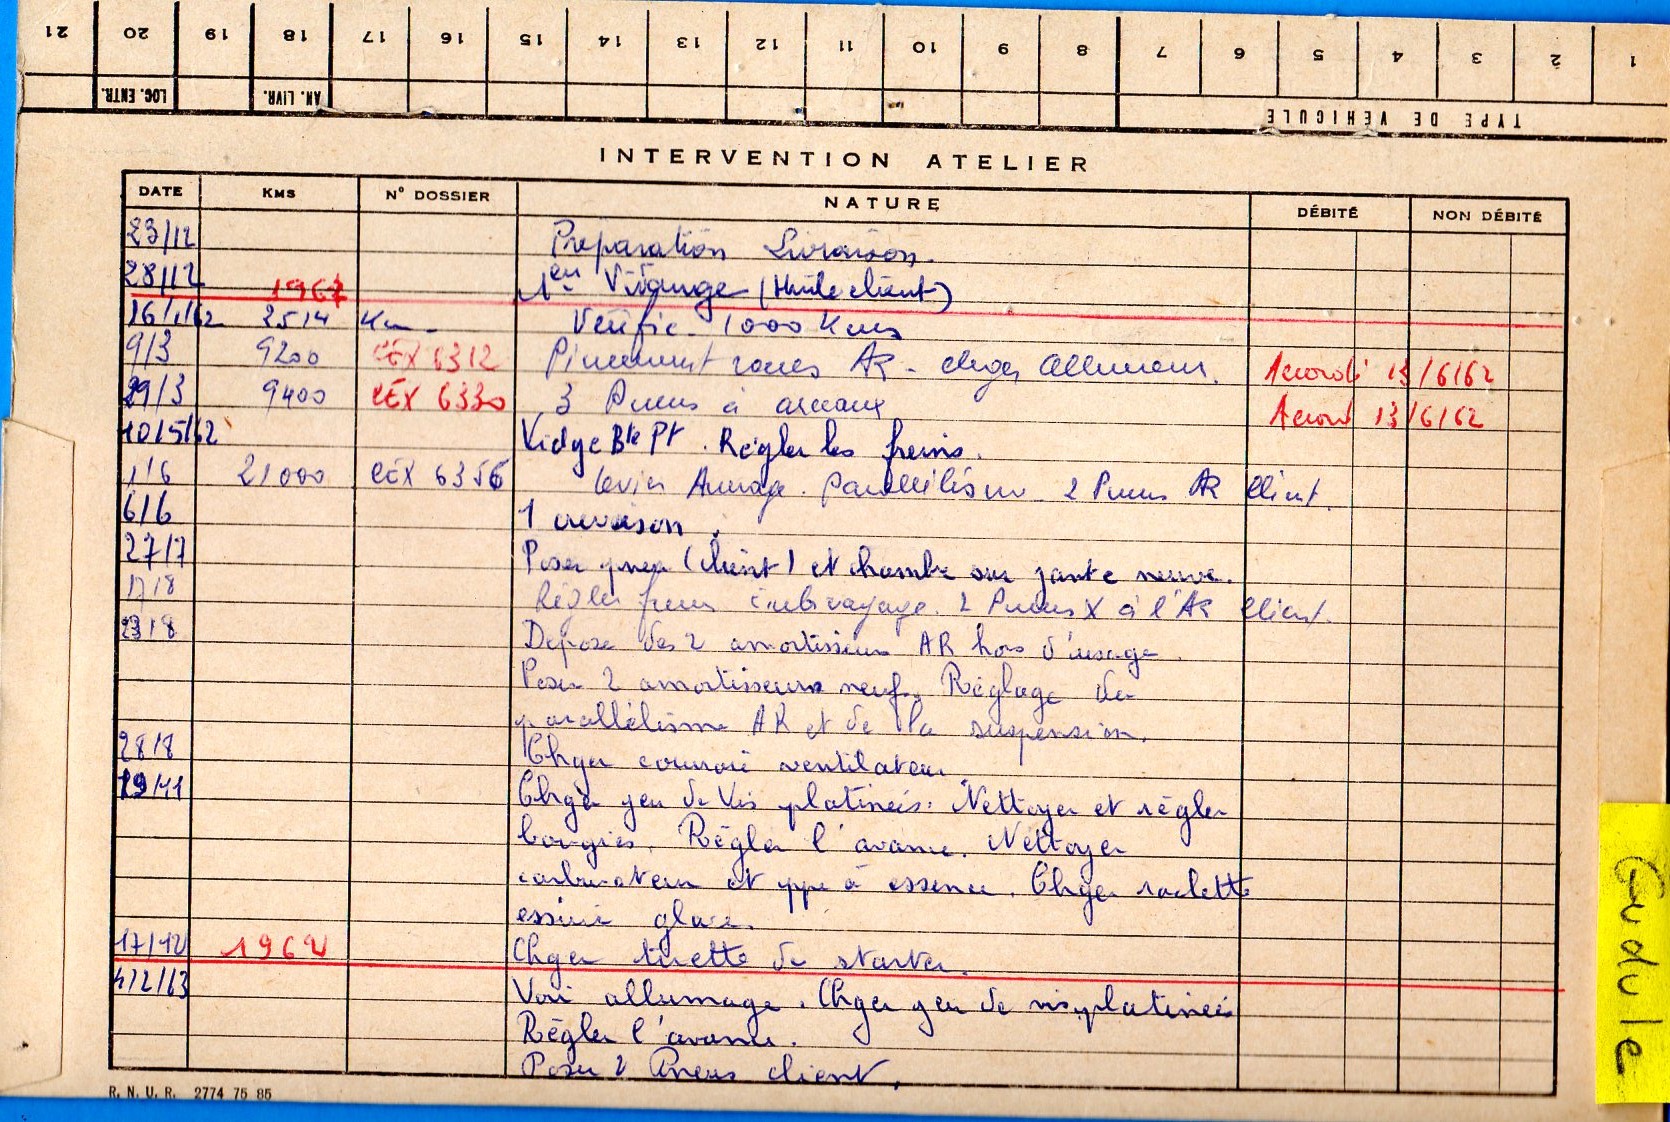 21 20 19 18 17 16 15 14 13 12 11 10 9 8 7 6 5 4 3 2 1
LOC. ENTR. AN. LIVR. TYPE DE VÉHICULE
INTERVENTION ATELIER
DATE KMS N° DOSSIER NATURE DÉBITÉ NON DÉBITÉ
23/12 Préparation Livraison.
28/12 1961 1ere Vidange (Huile client)
16/1/62 2514 Km Vérific. 1000 Kms
9/3 9200 CEX 6312 Pincement roues AR - chger Allumeur. Accordé 13/6/62
29/3 9400 CEX 6330 3 Pneus à arceaux Accord 13/6/62
10/5/62 Vidge Bte Pt. Régler les freins.
1/6 21000 CEX 6356 levier Parallélisme 2 Pneus AR Client.
6/6 1 crevaison.
27/7 Poser pneu (client) et chambre sur jante neuve.
17/8 Régler freins embrayage. 2 Pneus X à l'AR Client.
23/8 Dépose des 2 amortisseurs AR hors d'usage.
Poser 2 amortisseurs neufs. Réglage du
parallélisme AR et de la suspension.
28/8 Chger courroie ventilateur.
29/11 Chger jeu de Vis platinées. Nettoyer et régler
bougies. Régler l'avance. Nettoyer
carburateur et ppe à essence. Chger raclette
essuie glace.
17/12 1962 Chger tirette de starter.
4/2/63 Voir allumage. Chger jeu de vis platinées
Régler l'avance.
Poser 2 Pneus client.
R. N. U. R. 2774 75 85
Cudule